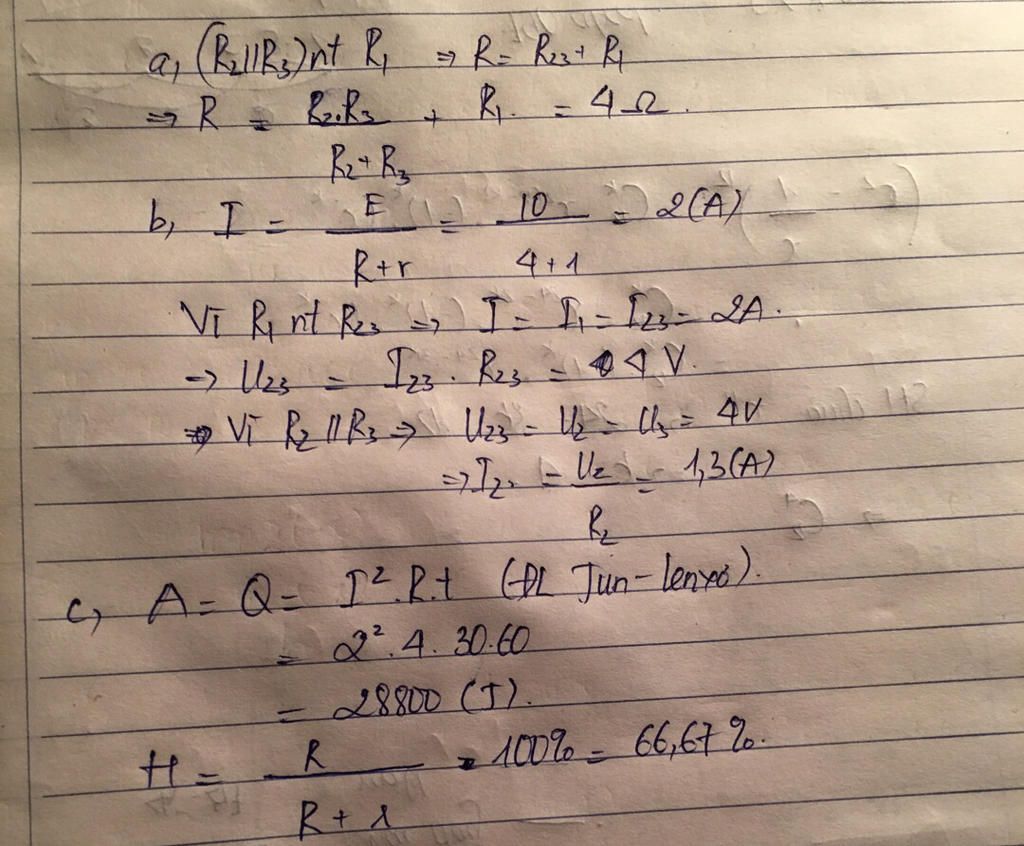 a, (R₂//R₃) nt R₁ ⇒ R = R₂₃ + R₁
⇒ R = R₂.R₃ + R₁ = 4 Ω.
R₂ + R₃
b, I = E = 10 = 2(A)
R+r 4+1
Vì R₁ nt R₂₃ ⇒ I = I₁ = I₂₃ = 2A.
→ U₂₃ = I₂₃ . R₂₃ = 4 V.
⇒ Vì R₂ // R₃ ⇒ U₂₃ = U₂ = U₃ = 4V
⇒ I₂ = U₂ = 1,3(A)
R₂
c, A = Q = I².R.t (ĐL Jun - lenxơ).
= 2².4.30.60
= 28800 (J).
H = R . 100% = 66,67 %.
R +